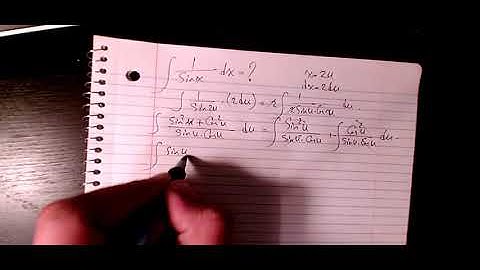 ∫ 1/sinx dx = ? x = 2u
dx = 2du
∫ 1/sin2u · (2du) = 2∫ 1/2sinu·cosu du
∫ sin²u + cos²u / sinu·cosu du = ∫ sin²u / sinu·cosu + ∫ cos²u / sinu·cosu du
∫ sinu